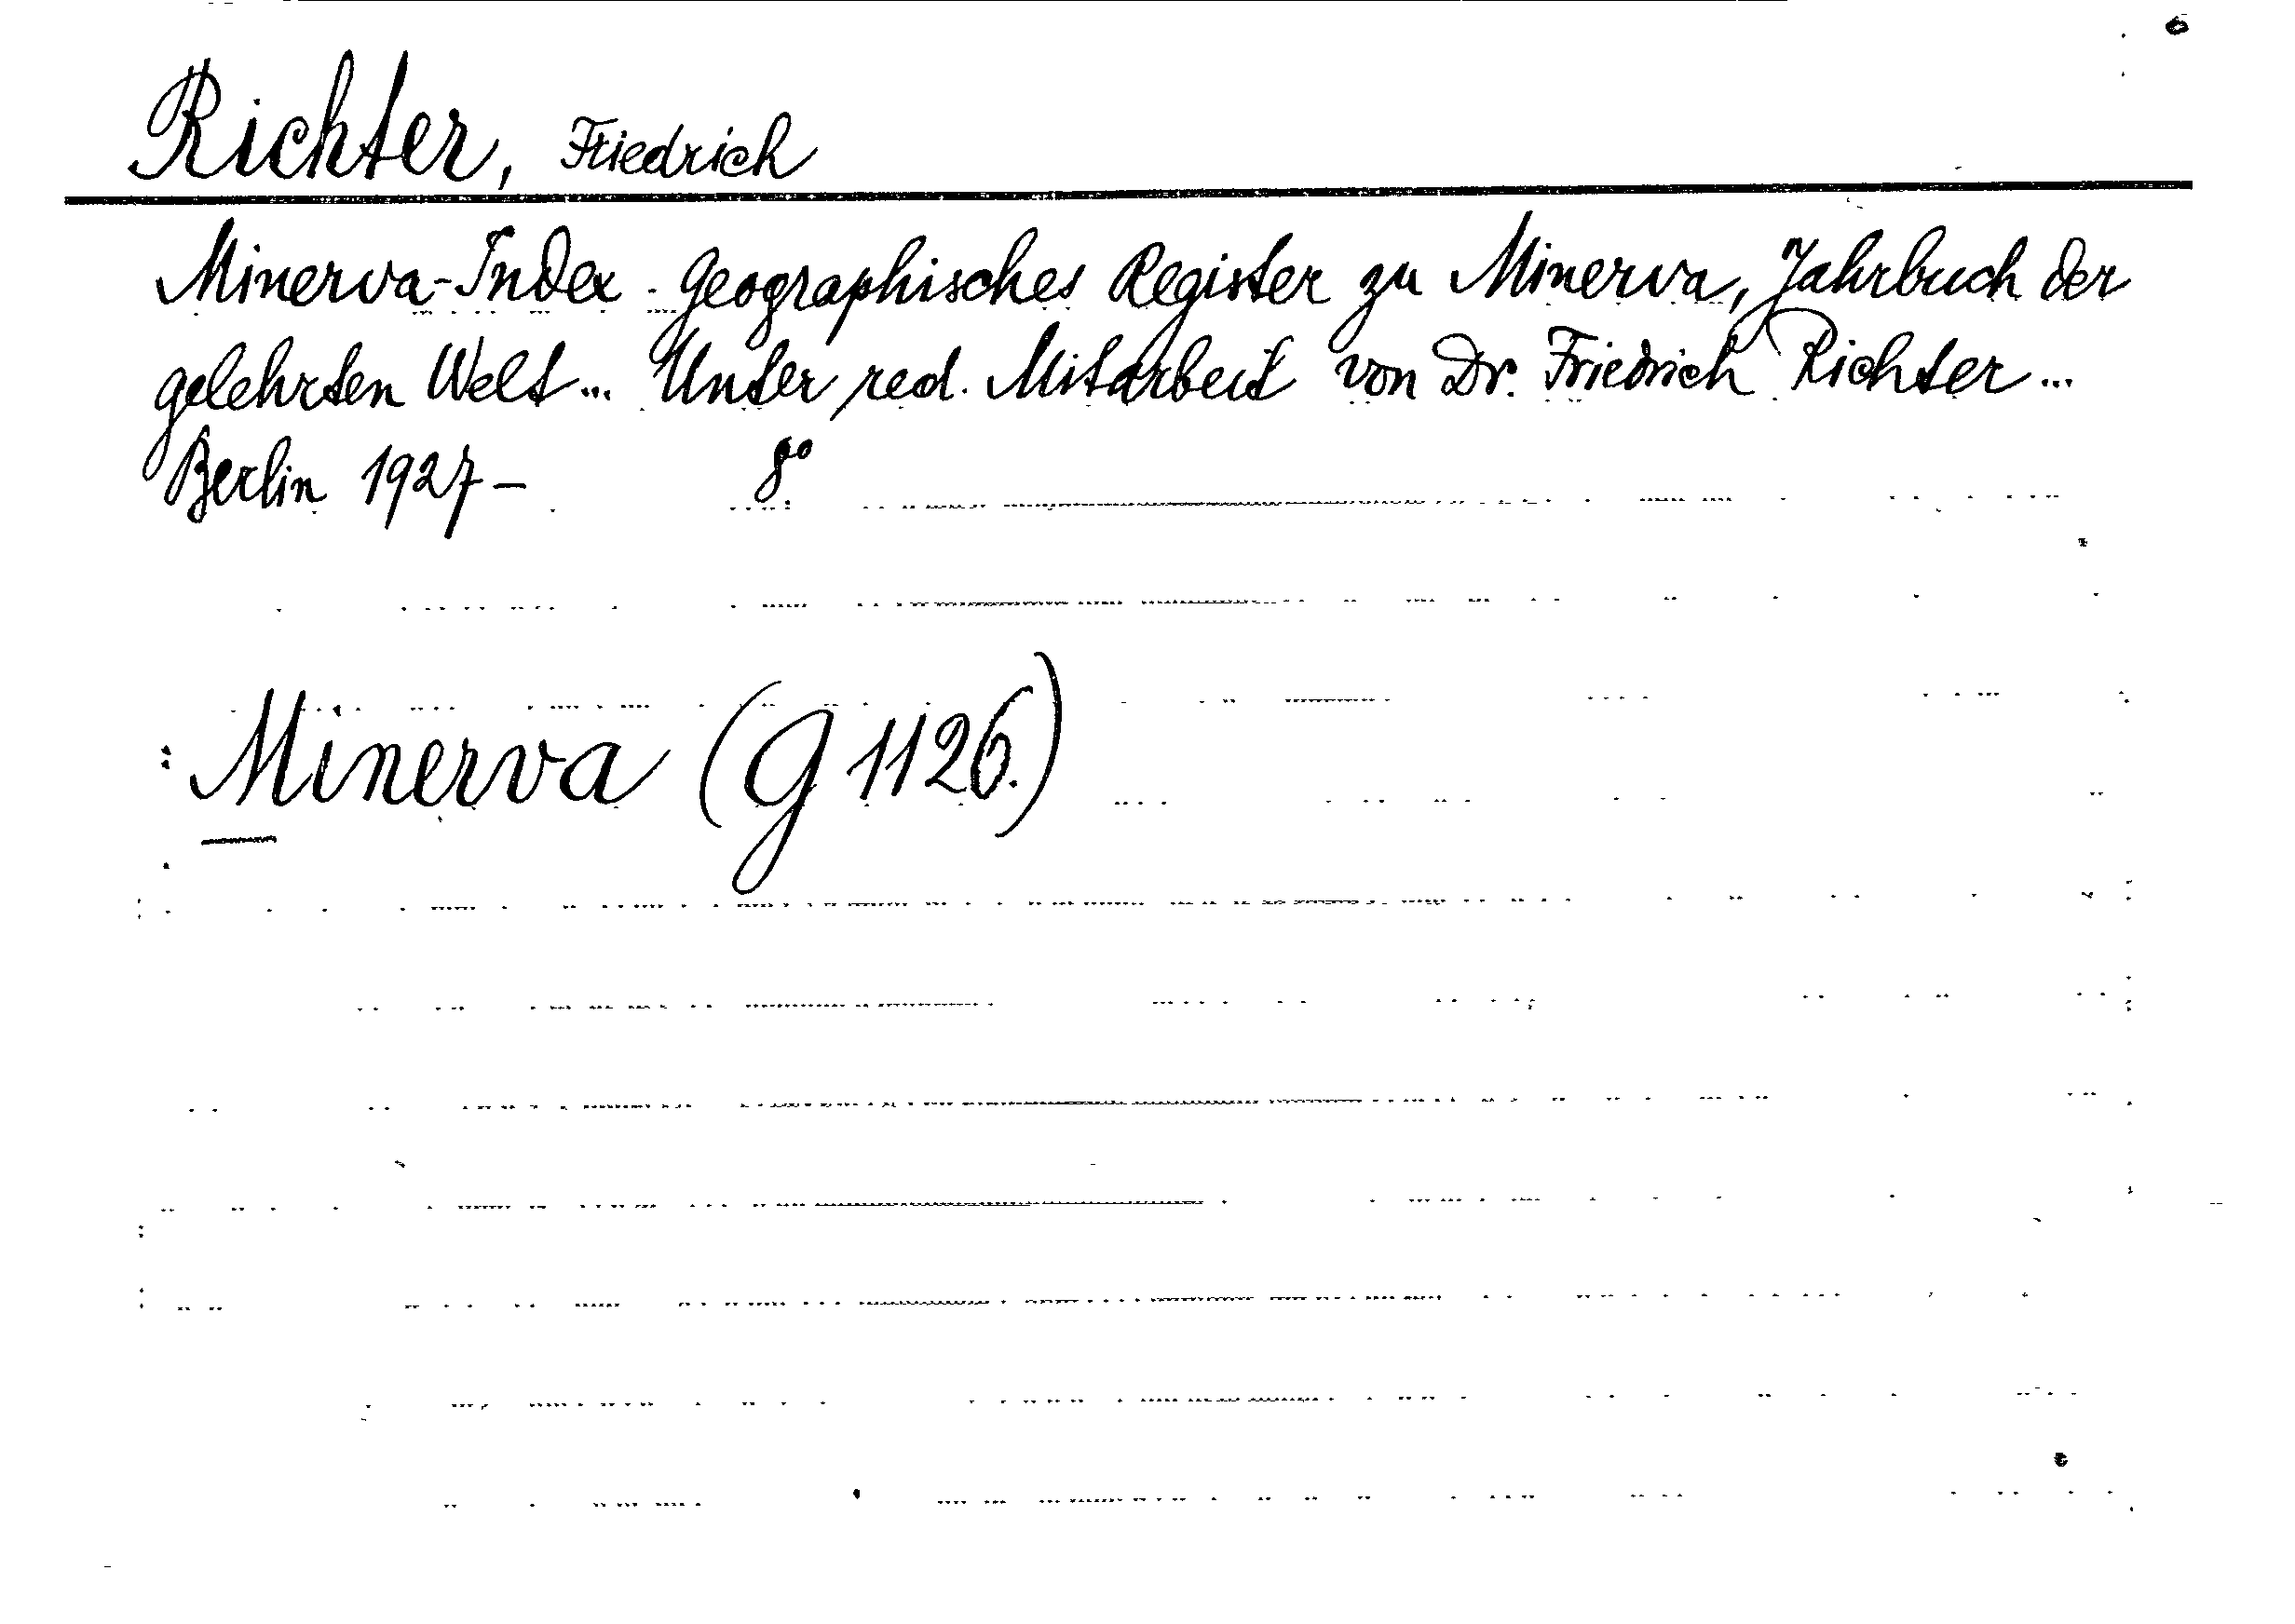 Richter, Friedrich
Minerva-Index. Geographisches Register zu Minerva, Jahrbuch der
gelehrten Welt... Unter red. Mitarbeit von Dr. Friedrich Richter...
Berlin 1927- 8°.
Minerva (G 1126.)